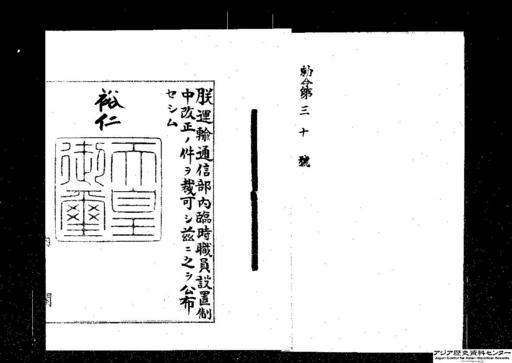 勅令第三十號
朕運輸通信部內臨時職員設置制
中改正ノ件ヲ裁可シ茲ニ之ヲ公布
セシム
裕仁
天皇
御璽
內
閣
アジア歴史資料センター
Japan Center for Asian Historical Records